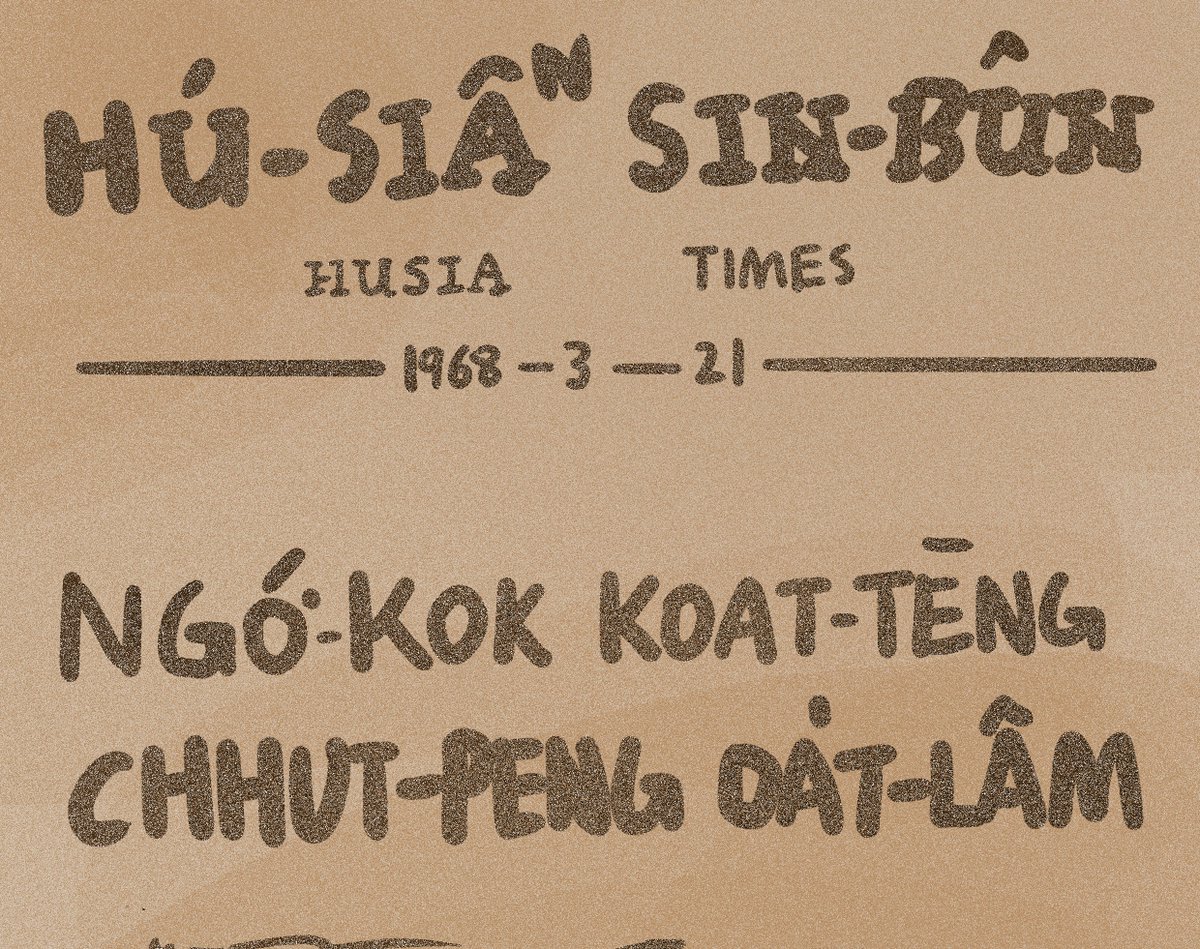 HÚ-SIÂᴺ SIN-BÛN
HUSIA TIMES
1968-3-21
NGÓ͘-KOK KOAT-TĒNG
CHHUT-PENG OA̍T-LÂM